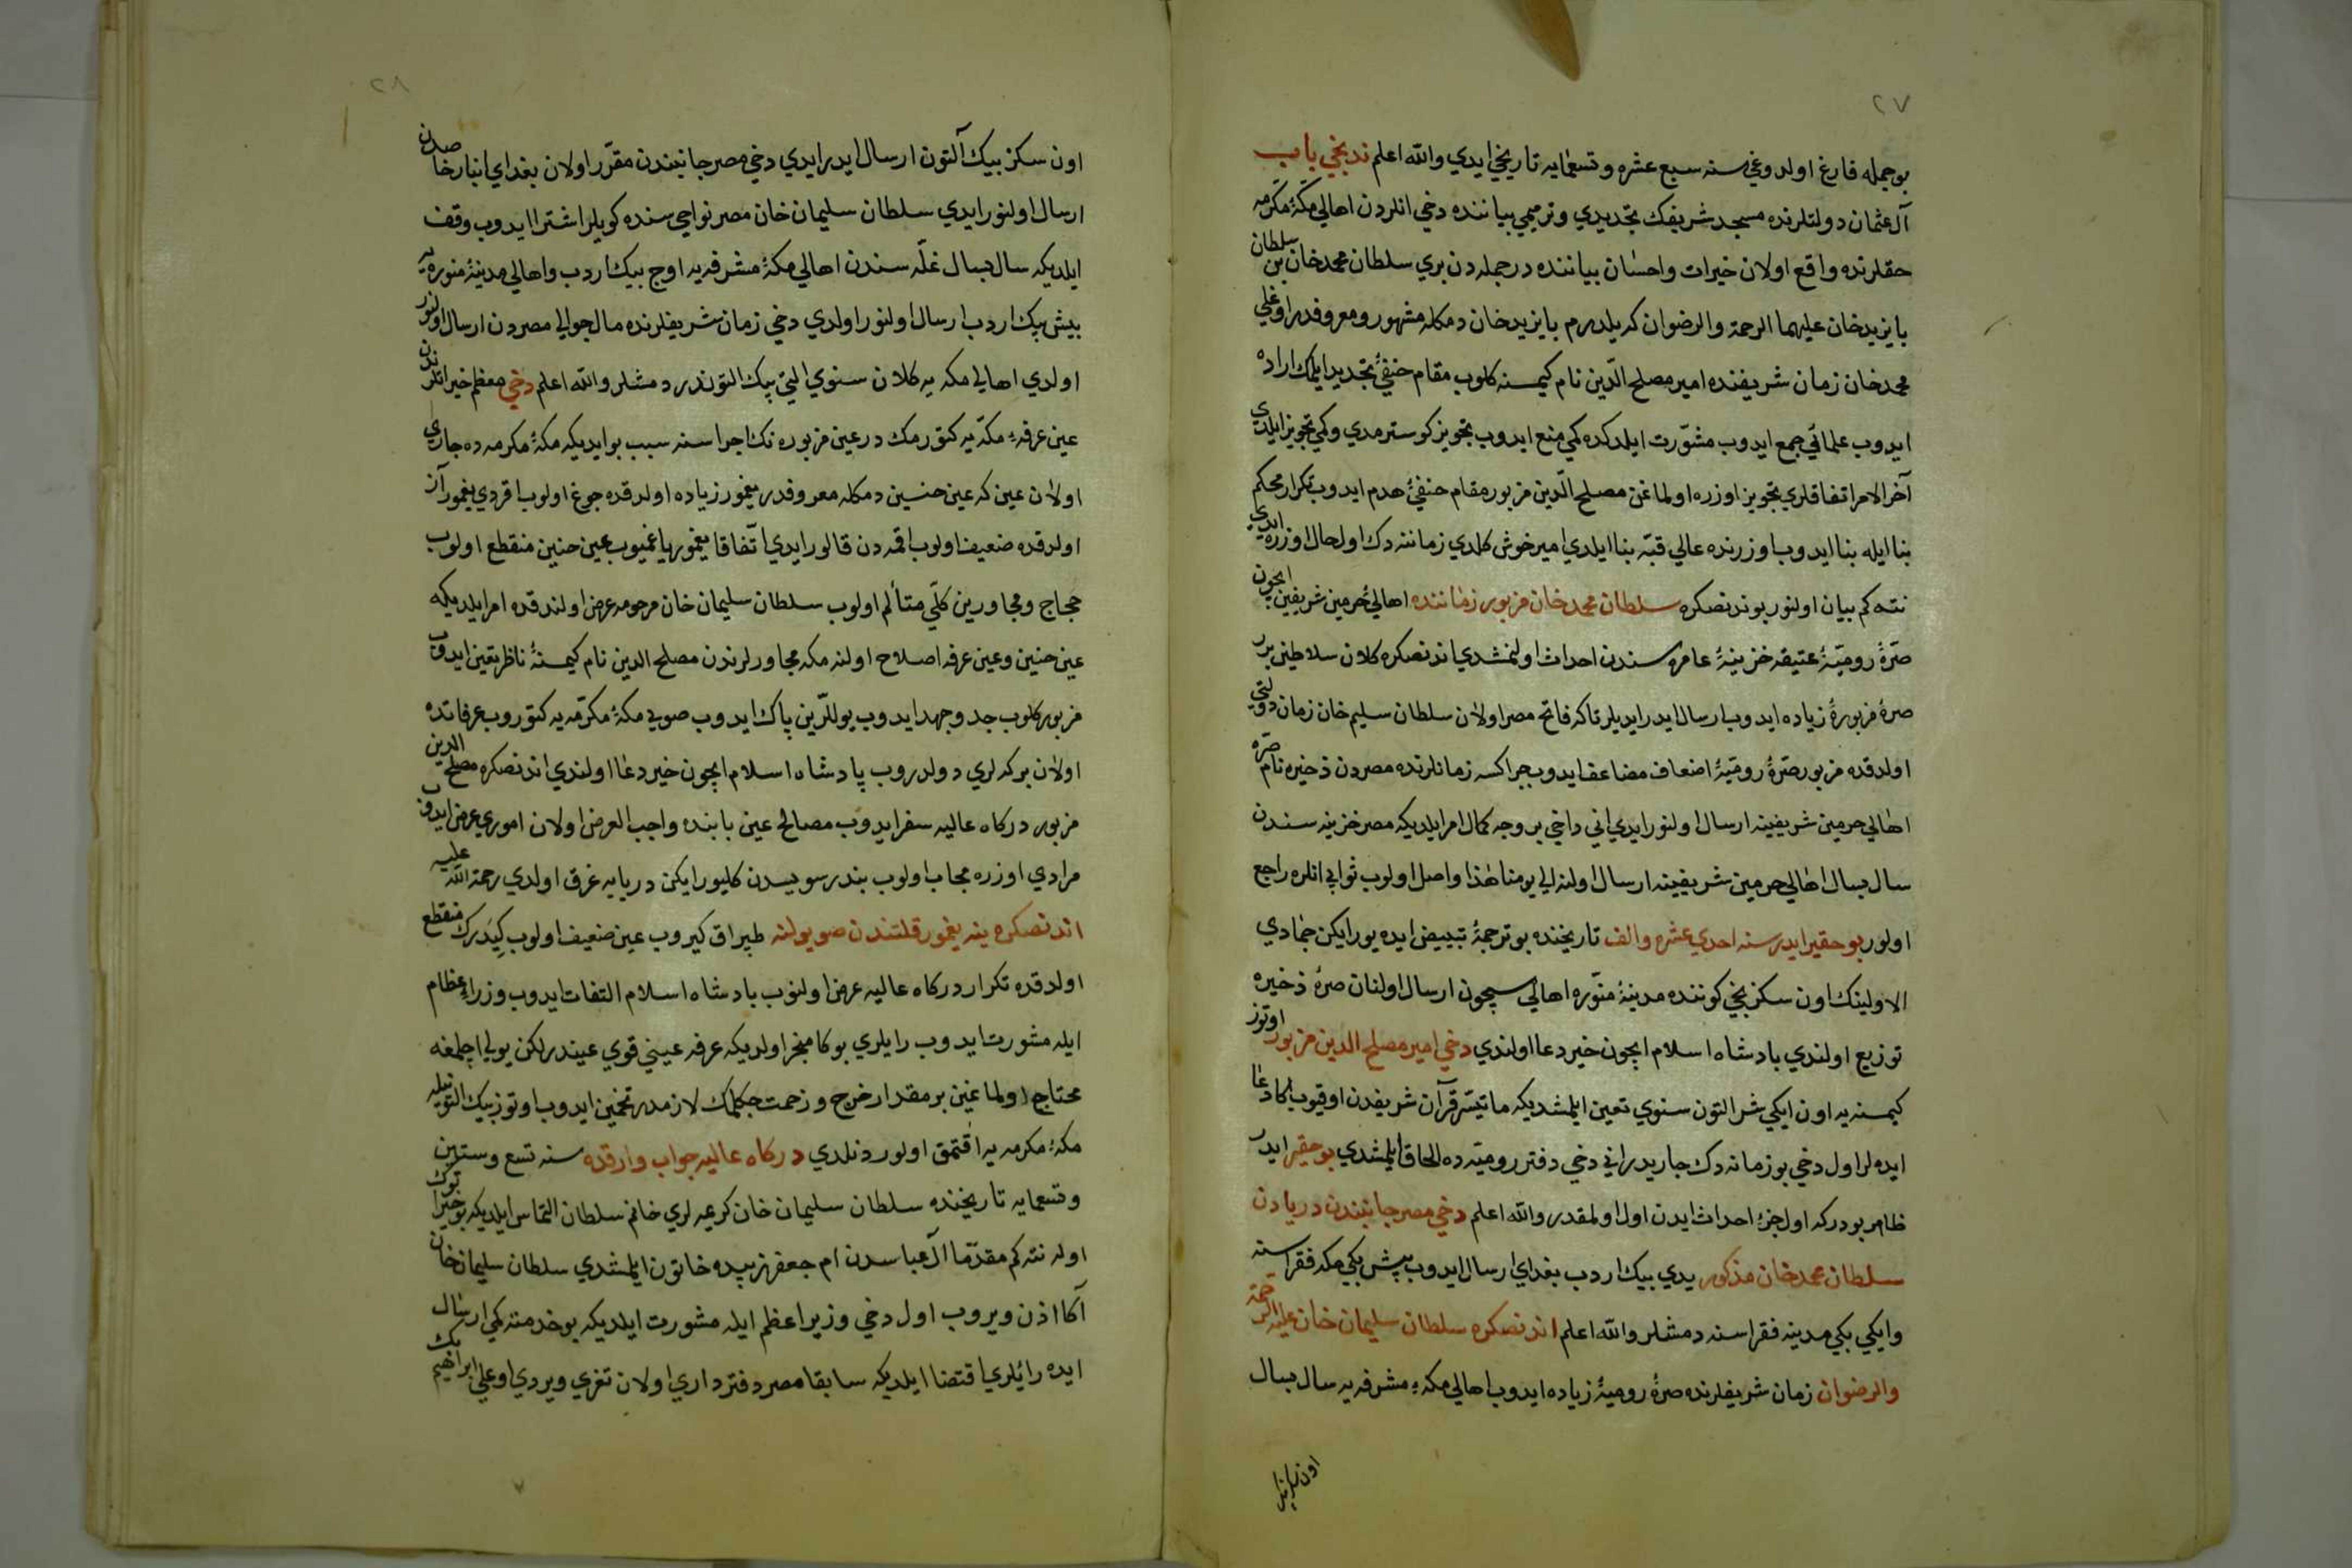 ٢٧
بو جمله فارغ اولدوغي سنه سبع عشره وتسعمايه تاريخي ايدي والله اعلم ندبخي باب
آل عثمان دولتلرنده مسجد شريفك تجديدي وترميمي بياننده دخي انلردن اهالي مكۀ مكرمه
حقلرنده واقع اولان خيرات واحسان بياننده در جمله دن بري سلطان محمد خان بن سلطان
بايزيد خان عليهما الرحمة والرضوان كه يلدرم بايزيد خان دمكله مشهور ومعروفدر اوغلي
محمد خان زمان شريفنده امير مصلح الدّين نام كيمسنه كلوب مقام حنفيۀ تجديد ايلمك اراده
ايدوب علمائي جمع ايدوب مشوّرت ايلدكده كمي منع ايدوب تجويز كوسترمدي وكمي تجويز ايلدي
آخر الامر اتفاقلري تجويز اوزره اولماغن مصلح الّدين مزبور مقام حنفيۀ هدم ايدوب تكرار محكم
بنا ايله بنا ايدوب اوزرنده عالي قبّه بنا ايلدي امير خوش كلدي زماننه دك اول حال اوزره ايدي
نته كم بيان اولنور بوندنصكره سلطان محمد خان مزبور زماننده اهاليۀ حرمين شريفين ايچون
صرّۀ روميّۀ عتيقه خزينۀ عامره سندن احداث اولنمشدي اندنصكره كلان سلاطين بربر
صرۀ مزبورۀ زياده ايدوب ارسال ايدر ايديلر تاكه فاتح مصر اولان سلطان سليم خان زمان دولتي
اولدقده مزبور صرّۀ روميّۀ اضعاف مضاعف ايدوب جراكسه زمانلرنده مصردن ذخيره نام صرّه
اهالي حرمين شريفينه ارسال اولنور ايدي اني داخي بر وجه كمال امر ايلديكه مصر خزينه سندن
سال بسال اهالي حرمين شريفينه ارسال اولنه الي يومنا هذا واصل اولوب ثوابي انلره راجع
اولور بو حقير ايدر سنه احدي عشره والف تاريخنده بو ترجمۀ تبييض ايده يورايكن جمادي
الاولينك اون سكزنجي كوننده مدينۀ منوّره اهاليسيچون ارسال اولنان صرۀ ذخيره
توزيع اولندي پادشاه اسلام ايچون خير دعا اولندي دخي امير مصلح الدين مزبور اوتوز
كيمسنه يه اون ايكيشر التون سنوي تعين ايلمشديكه ماتيسّر قرآن شريفدن اوقيوب اكا دعا
ايده لر اول دخي بو زمانه دك جاريدر اني دخي دفتر روميّه ده الحاق ايلمشدي بو حقير ايدر
ظاهر بودركه اول جزۀ احداث ايدن اول اولمقدر والله اعلم دخي مصر جانبندن دريادن
سلطان محمد خان مذكور يدي بيك اردب بغداي ارسال ايدوب بيش بيكي مكه فقراسنه
وايكي بيكي مدينه فقراسنه دمشلر والله اعلم اندنصكره سلطان سليمان خان عليه الرحمة
والرضوان زمان شريفلرنده صرۀ روميۀ زياده ايدوب اهالي مكۀ مشرفه يه سال بسال
٢٨
اون سكز بيك آلتون ارسال ايدر ايدي دخي مصر جانبندن مقرّر اولان بغداي انبار خاصدن
ارسال اولنور ايدي سلطان سليمان خان مصر نواحي سنده كويلر اشترا ايدوب وقف
ايلديكه سال بسال غلّه سندن اهالي مكۀ مشرفه يه اوچ بيك اردب واهالي مدينۀ منوره يه
بيش بيك اردب ارسال اولنور اولدي دخي زمان شريفلرنده مال جوالي مصردن ارسال اولنور
اولدي اهالي مكه يه كلان سنوي التي بيك التوندر دمشلر والله اعلم دخي معظم خيراتلرندن
عين عرفۀ مكّه يه كتورمك در عين مزبوره نك اجراسنه سبب بو ايديكه مكۀ مكرمه ده جاري
اولان عين كه عين حنين دمكله معروفدر يغمور زياده اولدقده چوغ اولوب اقردي يغمور آز
اولدقده ضعيف اولوب اقمه دن قالور ايدي اتّفاقا يغمور ياغميوب عين حنين منقطع اولوب
حجاج ومجاورين كلّي متألم اولوب سلطان سليمان خان مرحومه عرض اولندقده امر ايلديكه
عين حنين وعين عرفه اصلاح اولنه مكه مجاورلرندن مصلح الدين نام كيمسنۀ ناظر تعين ايدوب
مزبور كلوب جد وجهد ايدوب يوللرّين پاك ايدوب صويي مكۀ مكرّمه يه كتوروب عرفاتده
اولان بركه لري دولدروب پادشاه اسلام ايچون خير دعا اولندي اندنصكره مصلح الدين
مزبور دركاه عاليه سفر ايدوب مصالح عين بابنده واجب العرض اولان اموري عرض ايدوب
مرادي اوزره مجاب اولوب بندر سويسدن كليورايكن دريايه غرق اولدي رحمة الله عليه
اندنصكره ينه يغمور قلتندن صو يولنه طپراق كيروب عين ضعيف اولوب كيدرك منقطع
اولدقده تكرار دركاه عاليه عرض اولنوب پادشاه اسلام التفات ايدوب وزراء عظام
ايله مشورت ايدوب رايلري بوكا منجر اولديكه عرفه عيني قوي عيندر لكن يولي اچلمغه
محتاج اولماغين بر مقدار خرج وزحمت چكلمك لازمدر تخمين ايدوب اوتوز بيك التونيله
مكۀ مكرمه يه اقتمق اولور دنلدي دركاه عاليه جواب واردقده سنه تسع وستين
وتسعمايه تاريخنده سلطان سليمان خان كريمه لري خانم سلطان التماس ايلديكه بو خيرا توك
اوله نته كم مقدّما آل عباسدن ام جعفر زبيده خاتون ايلمشدي سلطان سليمان خان
آكا اذن ويروب اول دخي وزير اعظم ايله مشورت ايلديكه بو خدمته كمي ارسال
ايده رائلري اقتضا ايلديكه سابقا مصر دفترداري اولان تغري ويردي اوغلي ابراهيم بك